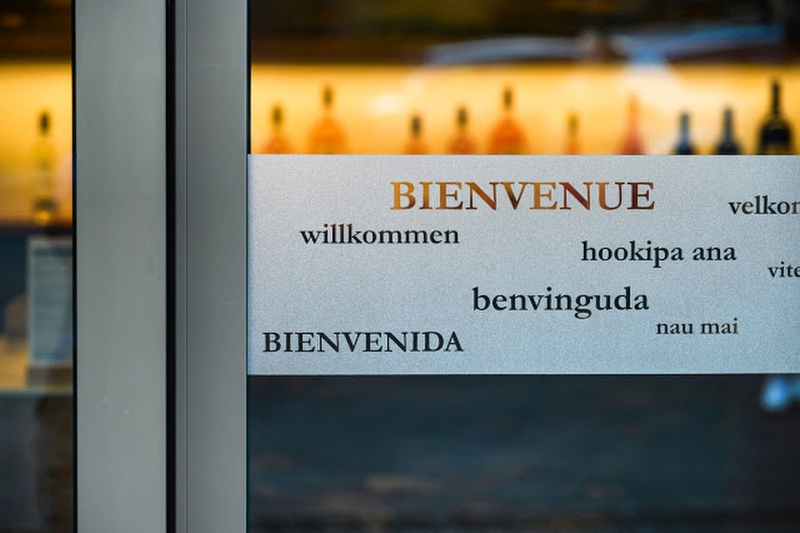 BIENVENUE
velkor
willkommen
hookipa ana
vite
benvinguda
nau mai
BIENVENIDA